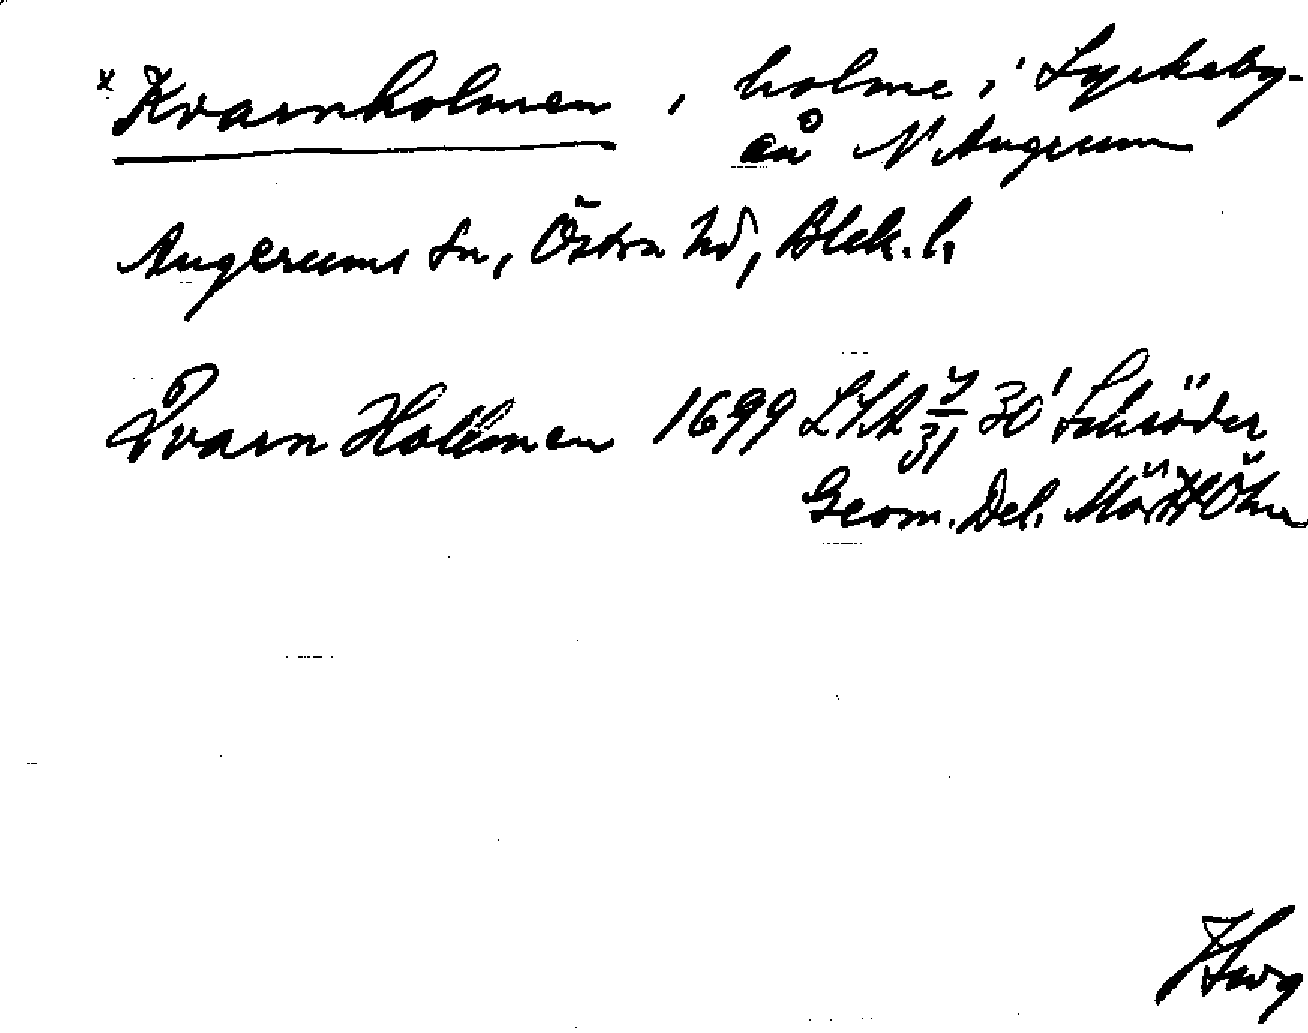 * Kvarnholmen, holme i Lyckeby-
ån N Augerum
Augerums sn, Östra hd, Blek. l.
Qvarn Hollmen 1699 LSA 30' Schröder
Geom. Del.